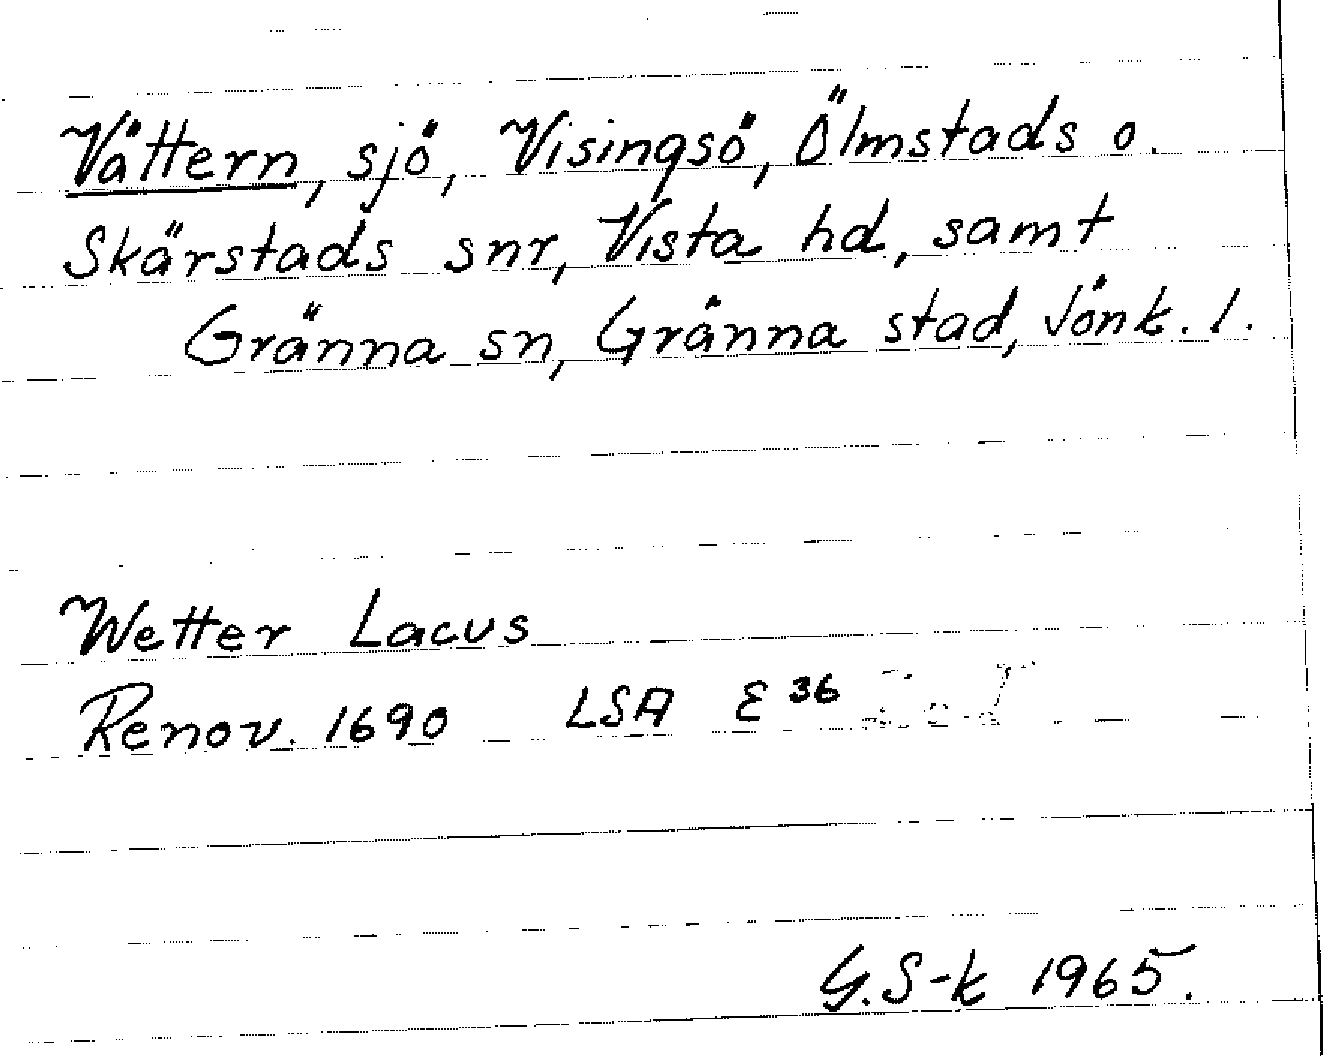 Vättern, sjö, Visingsö, Ölmstads o.
Skärstads snr, Vista hd, samt
Gränna sn, Gränna stad, Jönk. l.
Wetter Lacus
Renov. 1690 LSA E 36
G.S-k 1965.